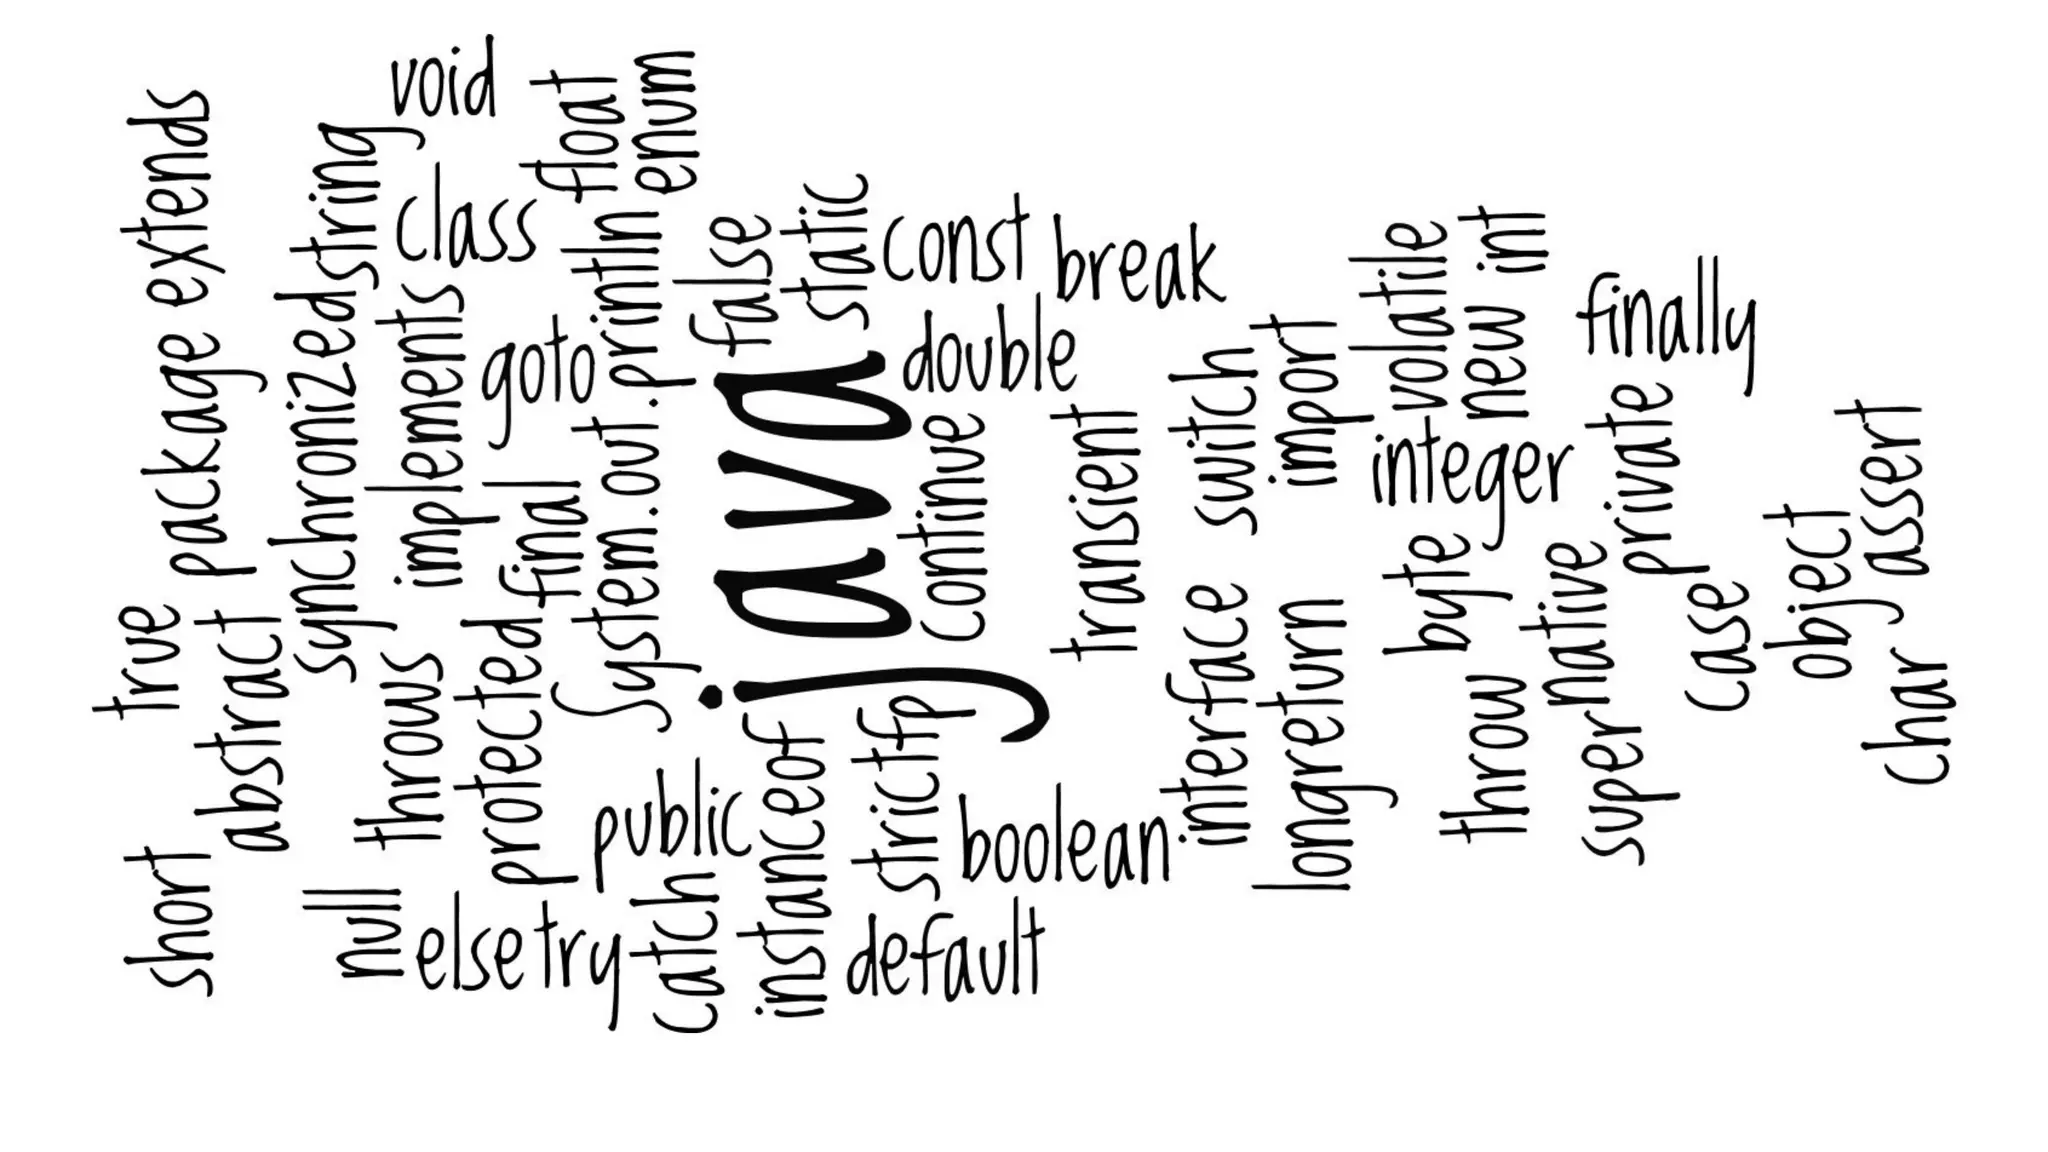 void
float
enum
extends
string
class
println
false
static
const
break
volatile
int
finally
package
synchronized
implements
goto
double
switch
import
new
private
assert
java
continue
transient
integer
final
System.out.
byte
native
object
case
true
abstract
throws
protected
interface
return
long
throw
super
char
public
instanceof
strictfp
boolean
short
null
else
try
catch
default